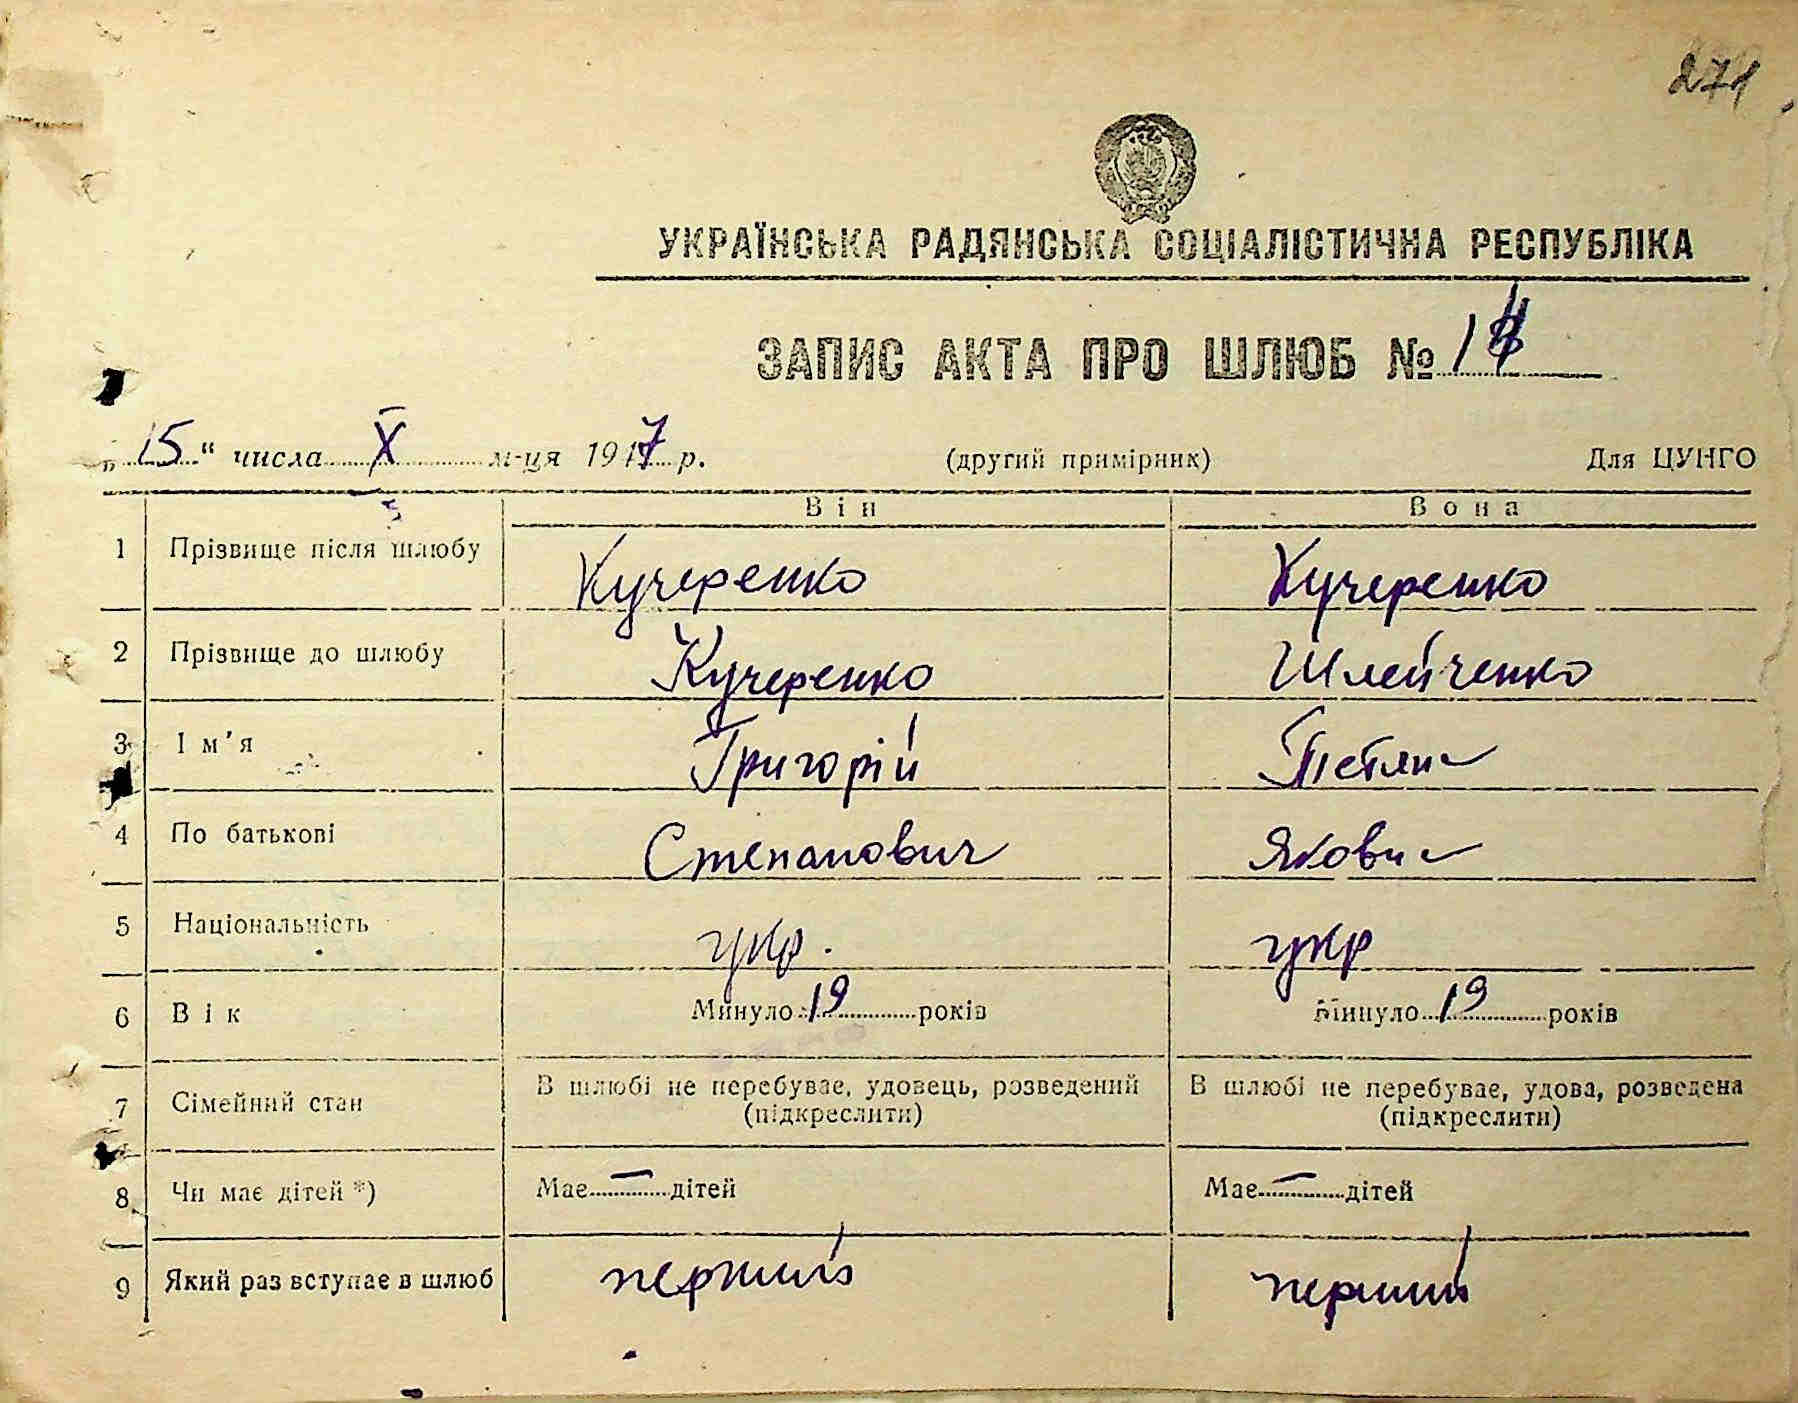 271
УКРАЇНСЬКА РАДЯНСЬКА СОЦІАЛІСТИЧНА РЕСПУБЛІКА
ЗАПИС АКТА ПРО ШЛЮБ №
„15“ числа X м-ця 1947 р. (другий примірник) Для ЦУНГО
Він Вона
1 Прізвище після шлюбу Кучеренко Кучеренко
2 Прізвище до шлюбу Кучеренко Шлейченко
3 Ім'я Григорій Тетяна
4 По батькові Степанович Яковна
5 Національність укр. укр
6 Вік Минуло 19 років Минуло 19 років
7 Сімейний стан В шлюбі не перебуває, удовець, розведений (підкреслити) В шлюбі не перебуває, удова, розведена (підкреслити)
8 Чи має дітей *) Має — дітей Має — дітей
9 Який раз вступає в шлюб перший перший